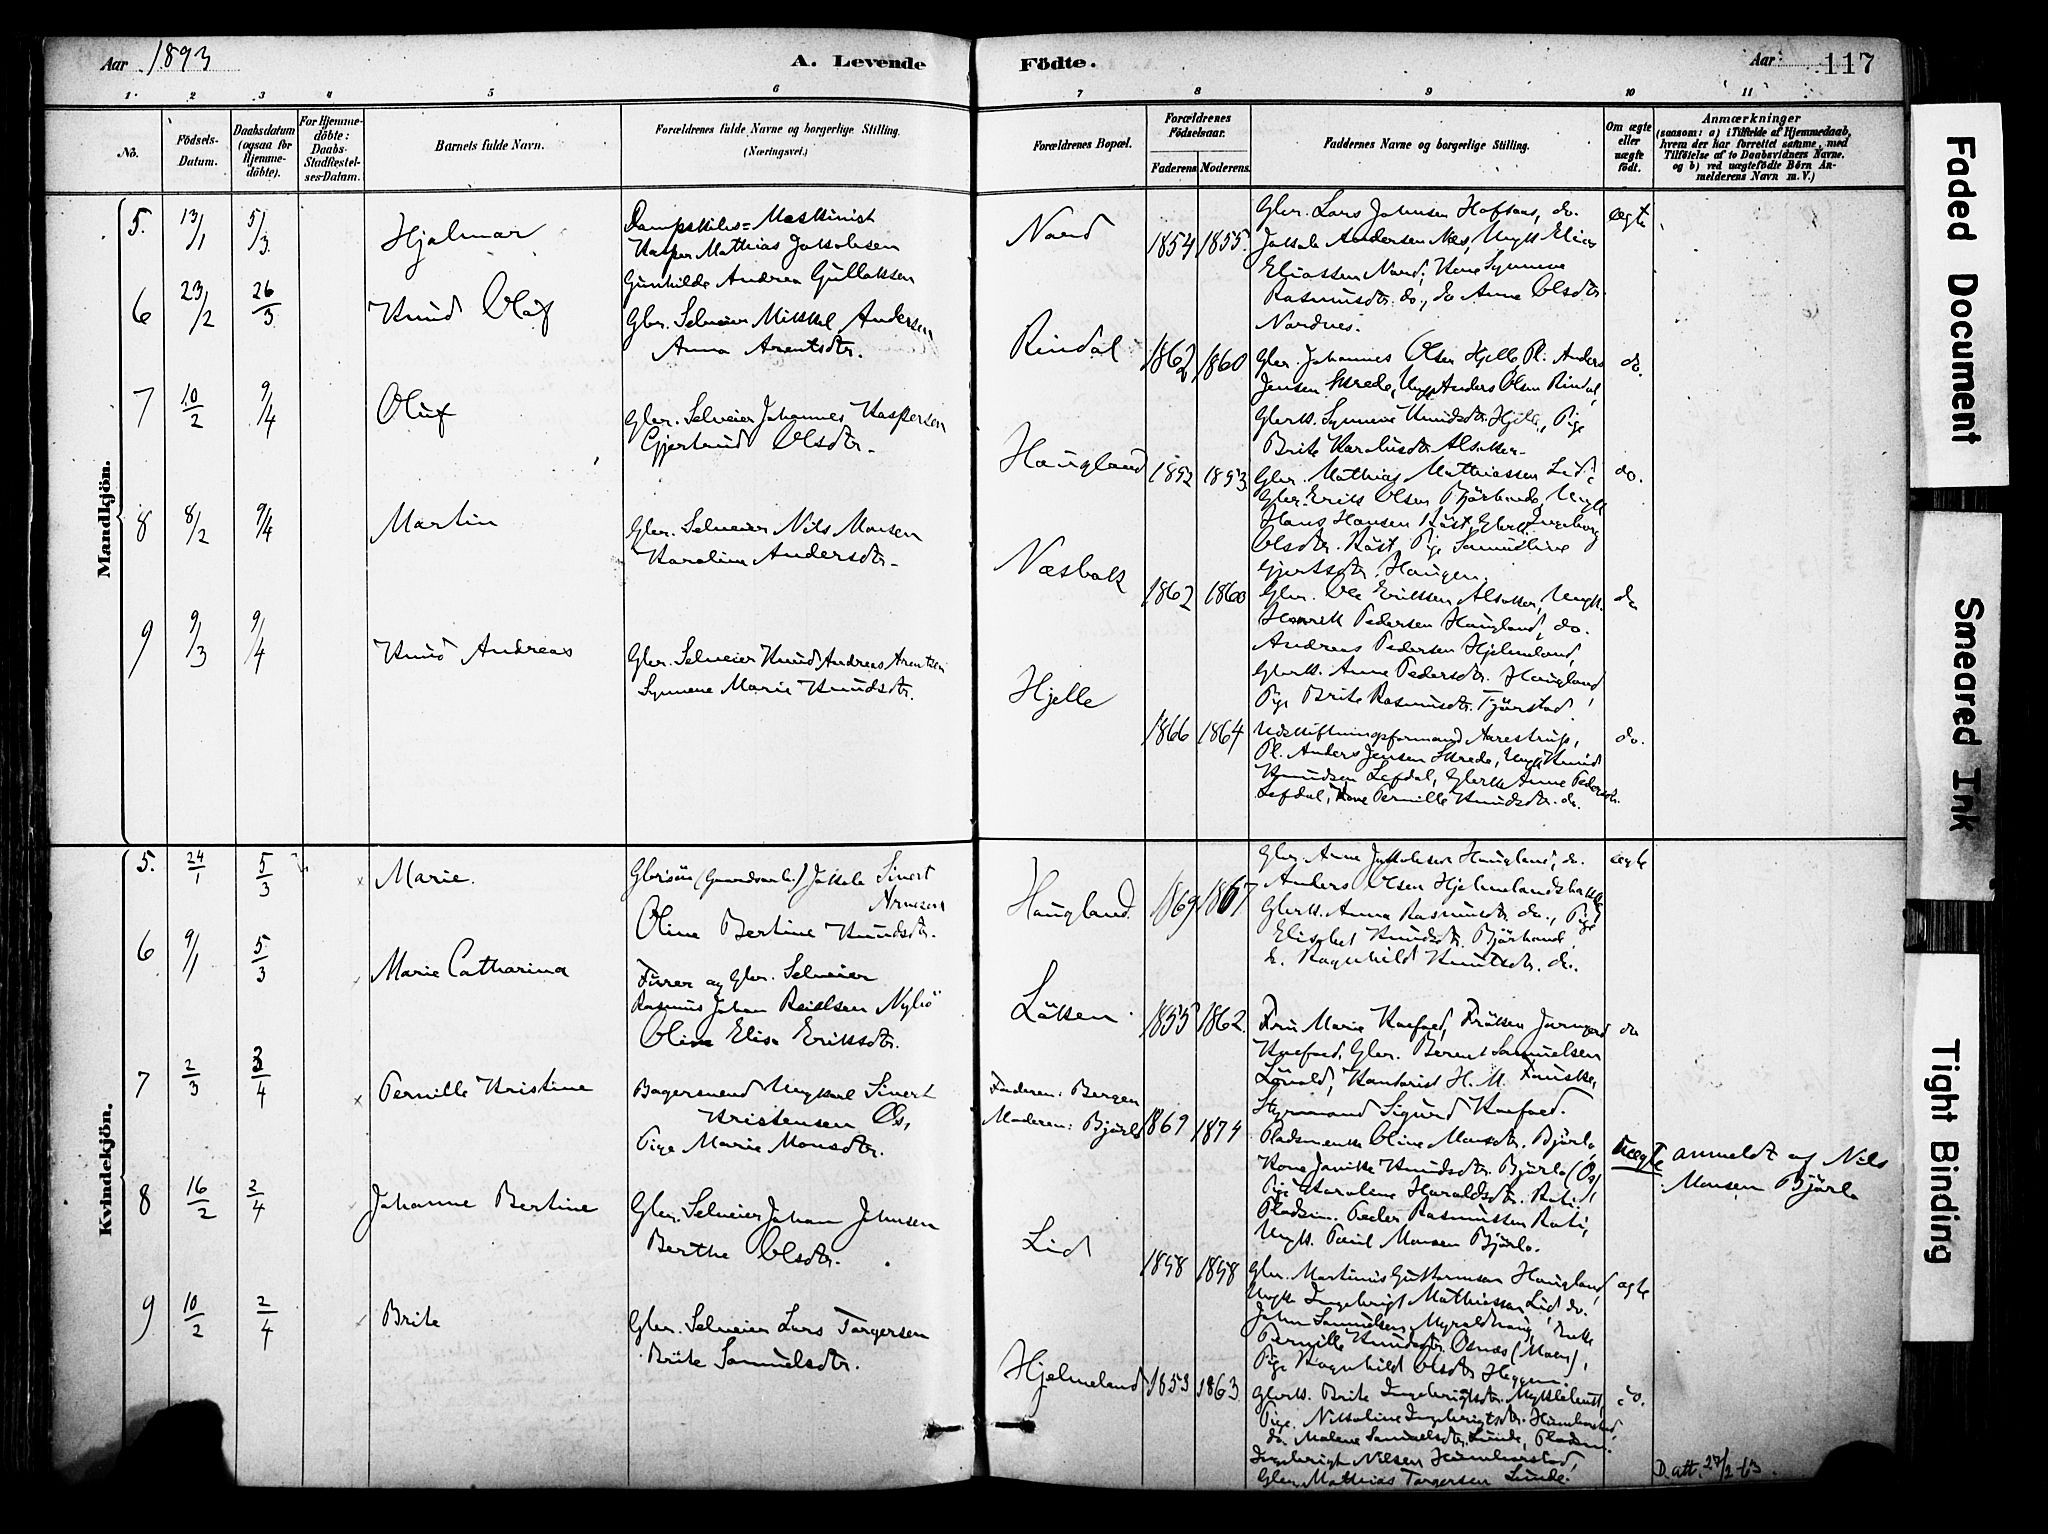 Aar 1893
A. Levende Födte.
Aar
117
1. 2 3 4 5 6 7 8 9 10 11
No.
Födsels-Datum.
Daabsdatum (ogsaa for Hjemme-döbte).
For Hjemme-döbte: Daabs-Stadfæstel-ses-Datum.
Barnets fulde Navn.
Forældrenes fulde Navne og borgerlige Stilling.
(Næringsvei.)
Forældrenes Bopæl.
Forældrenes Födselsaar.
Faderens Moderens
Faddernes Navne og borgerlige Stilling.
Om ægte eller uægte födt.
Anmærkninger
(saasom: a) i Tilfælde af Hjemmedaab, hvem der har forrettet samme, med Tilföielse af to Daabsvidners Navne. og b) ved uægtefödte Börn An-melderens Navn m. V.)
Mandkjön.
5. 13/1 5/3 Hjalmar
Dampskibs=Maskinist
Kasper Mathias Jakobsen
Gunhilde Andrea Gullaksen
Nord 1854 1855.
Gbr. Lars Johnsen Hofsaas, do.
Jakob Andersen Næs, Ungk Elias
Eliassen Nord, Kone Synneve
Rasmusdtr. do., do Anne Olsdtr.
Nordnes.
ægte
6 23/2 26/3 Knud Olaf
Gbr. Selveier Mikkel Andersen
Anna Arentsdtr.
Rindal 1862 1860
Gbr. Johannes Olsen Hjelle, Pl. Anders
Jensen Skrede, Ungk Anders Olsen Rindal,
Gbrk. Synneve Knudsdtr. Hjelle, Pige
Brite Karolusdtr. Alsaker.
do.
7 10/2 9/4 Oluf
Gbr. Selveier Johannes Kaspersen
Gjertrud Olsdtr.
Haugland 1852 1853
Gbr. Mathias Mathiassen Lid,
Gbr. Erik Olsen Bjørhovde, Ungk
Hans Hansen Råst, Gbrk. Ingeborg
Olsdtr. Råst, Pige Samueline
Gjertsdtr. Haugen.
do.
8 8/2 9/4 Martin
Gbr. Selveier Nils Monsen
Karoline Andersdtr.
Næsbak 1862 1860
Gbr. Ole Eriksen Alsaker, Ungk.
Henrik Pedersen Haugland, do.
Andreas Pedersen Hjelmeland,
Gbrk. Anne Pedersdtr. Haugland,
Pige Brite Rasmusdtr. Tjørstad.
do
9 9/3 9/4 Knud Andreas
Gbr. Selveier Knud Andreas Arentsen
Synneve Marie Knudsdtr.
Hjelle 1866 1864
Udskiftningsformand Aarestrup,
Pl. Anders Jensen Skrede, Ungk Knud
Knudsen Lefdal, Gbrk Anne Pedersdtr.
Lefdal, Kone Pernille Knudsdtr. do.
do.
Kvindekjön.
5. 24/1 5/3 Marie.
Gbrsøn (Gaardsarb.) Jakob Sivert
Arnesen
Oline Bertine Knudsdtr.
Haugland. 1869 1867
Gbr. Arne Jakobsen Haugland, do.
Anders Olsen Hjelmelandsbakke
Gbrk. Anna Rasmusdtr. do., Pige
Elisabet Knudsdtr. Bjørhovde,
do. Ragnhild Knutsdtr. do.
ægte
6 9/1 5/3 Marie Catharina
Furer og Gbr. Selveier
Rasmus Johan Reielsen Nybø
Oline Elise Eriksdtr.
Løkken 1855 1862.
Fru Marie Koefoed, Frøken
Koefoed, Gbr. Berent Samuelsen
Løvold, Kontorist H. M. Fauske,
Styrmand Sigurd Koefoed.
do
7 2/3 2/4 Pernille Kristine
Bagersvend Ungkarl Sivert
Kristensen Os,
Pige Marie Monsdtr.
Faderen: Bergen
Moderen: Bjørlo
1869 1874
Pladsmenke Oline Monsdtr. Bjørlo,
Kone Janikke Knudsdtr. Bjørlo (Os),
Pige Karolene Haraldsdtr. Roti,
Pladsm. Peder Rasmussen Roti,
Ungk. Paul Monsen Bjørlo.
Uægte
anmeldt af Nils
Monsen Bjørlo
8 16/2 2/4 Johanne Bertine
Gbr. Selveier Johan Johnsen
Berthe Olsdtr.
Lid 1858 1858
Gbr. Martinus Guttormsen Haugland,
Ungk Ingebrigt Mathiassen Lid, do.
John Samuelsen Myroldhaug, Enke
Pernille Knudsdtr. Osnæs (Moen),
Pige Ragnhild Olsdtr. Heggen.
ægte
9 10/2 2/4 Brite
Gbr. Selveier Lars Torgersen
Brite Samuelsdtr.
Hjelmeland 1853 1863
Gbrk. Brite Ingebrigtsdtr. Myklebust,
Pige Nikoline Ingebrigtsdtr. Heimhorstad,
do. Malene Samuelsdtr. Lunde, Pladsm.
Ingebrigt Nilsen Heimhorstad,
Gbr. Mathias Torgersen Lunde.
do.
D. att. 27/2-63.
Faded Document
Smeared Ink
Tight Binding